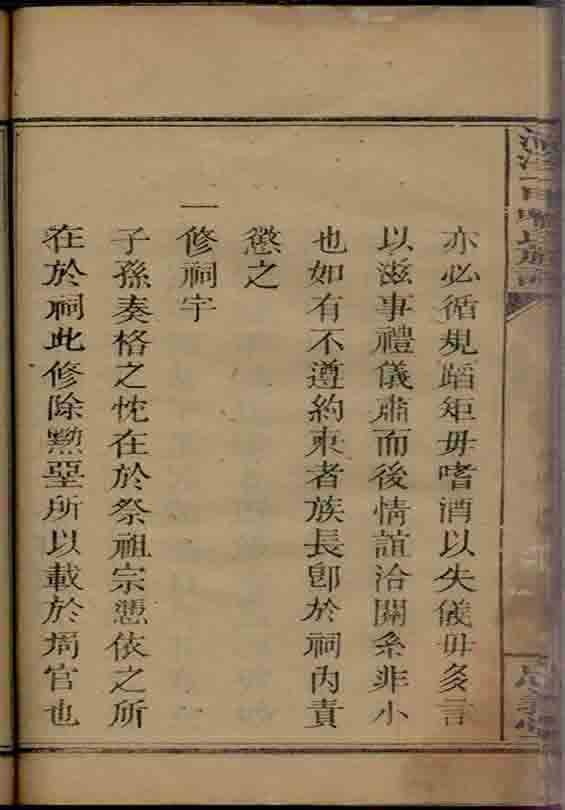 亦必循規蹈矩毋嗜酒以失儀毋多言
以滋事禮儀肅而後情誼洽關系非小
也如有不遵約束者族長卽於祠內責
懲之
一修祠宇
子孫奏格之忱在於祭祖宗憑依之所
在於祠此修除黝堊所以載於周官也